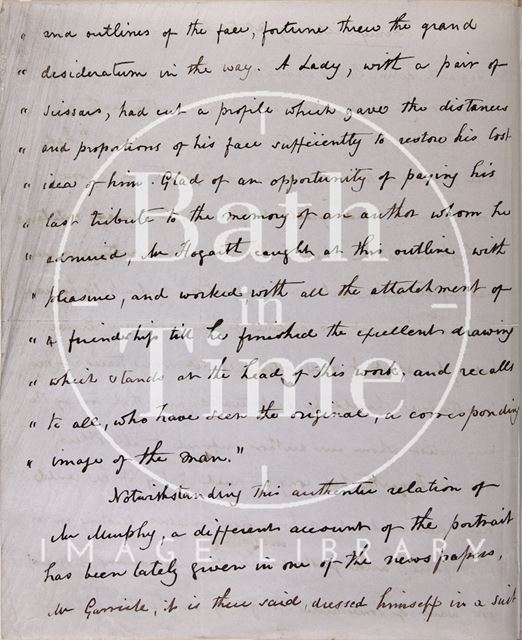 " and outlines of the face, fortune threw the grand
" desideratum in the way. A Lady, with a pair of
" scissars, had cut a profile which gave the distances
" and proportions of his face sufficiently to restore his lost
" idea of him. Glad of an opportunity of paying his
" last tribute to the memory of an author whom he
" admired, Mr Hogarth caught at this outline with
" pleasure, and worked with all the attatchment of
" a friendship till he finished the excellent drawing
" which stands at the head of this work, and recalls
" to all, who have seen the original, a corresponding
" image of the man."
Notwithstanding this authentic relation of
Mr Murphy, a different account of the portrait
has been lately given in one of the newspapers,
Mr Garrick, it is there said, dressed himself in a suit
Bath
in
Time
IMAGE LIBRARY